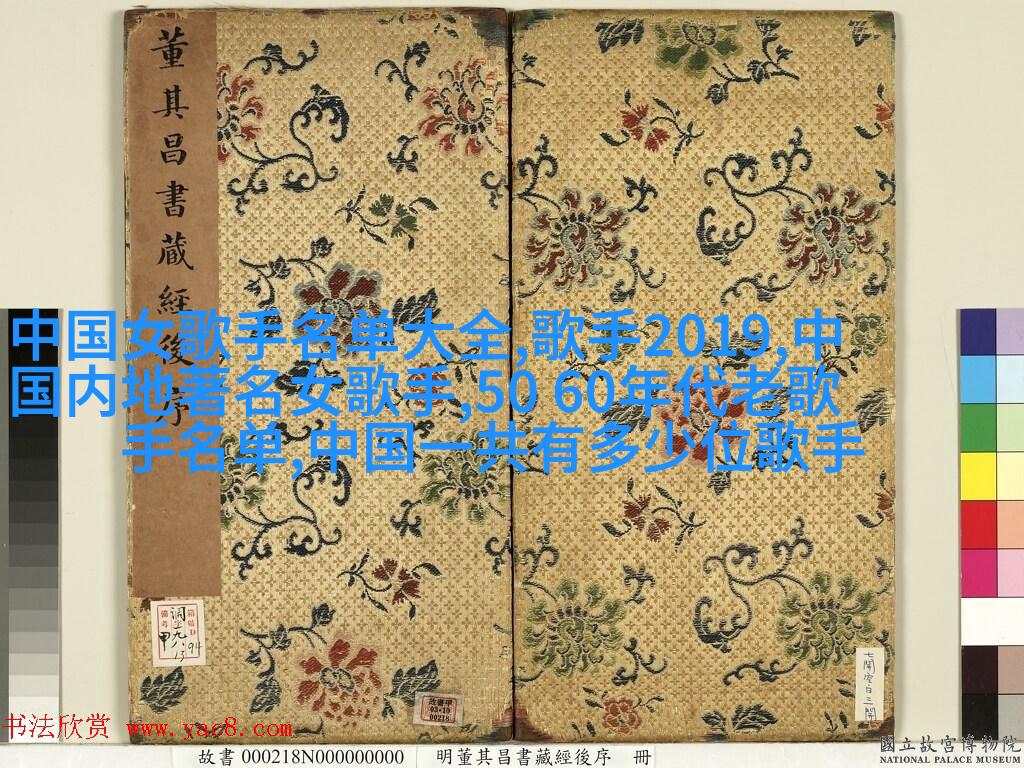 董其昌書藏經後序
中国女歌手名单大全,歌手2019,中
国内地著名女歌手,50 60年代老歌
手名单,中国一共有多少位歌手
箱號D
94
備考
調字九八
13
甲
故書甲
03-10
00218
七開空白三開
书法欣赏 www.yac8.com
故書 000218N000000000
明董其昌書藏經後序 冊
國立故宮博物院
NATIONAL PALACE MUSEUM